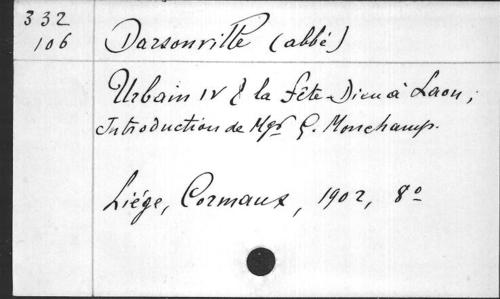 332
106
Darsonville (abbé)
Urbain IV & la Fête-Dieu à Laon;
Introduction de Mgr G. Monchamp.
Liége, Cormaux, 1902, 8°